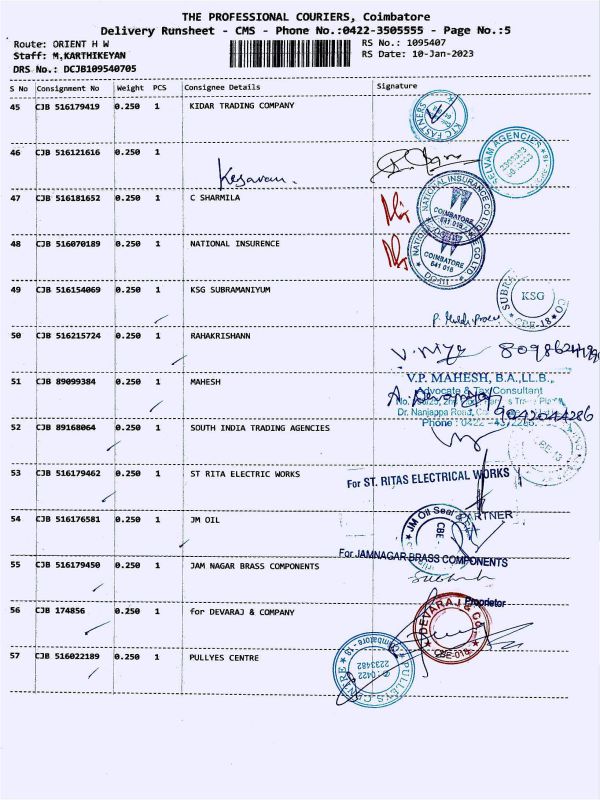 THE PROFESSIONAL COURIERS, Coimbatore
Delivery Runsheet - CMS - Phone No.:0422-3505555 - Page No.:5
Route: ORIENT H W
RS No.: 1095407
Staff: M,KARTHIKEYAN
RS Date: 10-Jan-2023
DRS No.: DCJB109540705
S No Consignment No Weight PCS Consignee Details Signature
45 CJB 516179419 0.250 1 KIDAR TRADING COMPANY
KTC FASTNERS
46 CJB 516121616 0.250 1
Kesavan.
SELVAM AGENCIES
47 CJB 516181652 0.250 1 C SHARMILA
NATIONAL INSURANCE CO LTD
COIMBATORE
641 018
48 CJB 516070189 0.250 1 NATIONAL INSURENCE
COIMBATORE
641 018
DO-III
49 CJB 516154069 0.250 1 KSG SUBRAMANIYUM
KSG
CBE-18
50 CJB 516215724 0.250 1 RAHAKRISHANN
51 CJB 89099384 0.250 1 MAHESH
V.P. MAHESH, B.A.,LL.B.,
Advocate & Tax Consultant
Dr. Nanjappa Road,
Phone : 0422
52 CJB 89168064 0.250 1 SOUTH INDIA TRADING AGENCIES
53 CJB 516179462 0.250 1 ST RITA ELECTRIC WORKS
For ST. RITAS ELECTRICAL WORKS
PARTNER
54 CJB 516176581 0.250 1 JM OIL
JM Oil Seal
CBE
55 CJB 516179450 0.250 1 JAM NAGAR BRASS COMPONENTS
For JAMNAGAR BRASS COMPONENTS
Proprietor
56 CJB 174856 0.250 1 for DEVARAJ & COMPANY
DEVARAJ & CO
CBE-018
57 CJB 516022189 0.250 1 PULLYES CENTRE
PULLEYS CENTRE
Coimbatore - 18
✆ : 0422
2233482